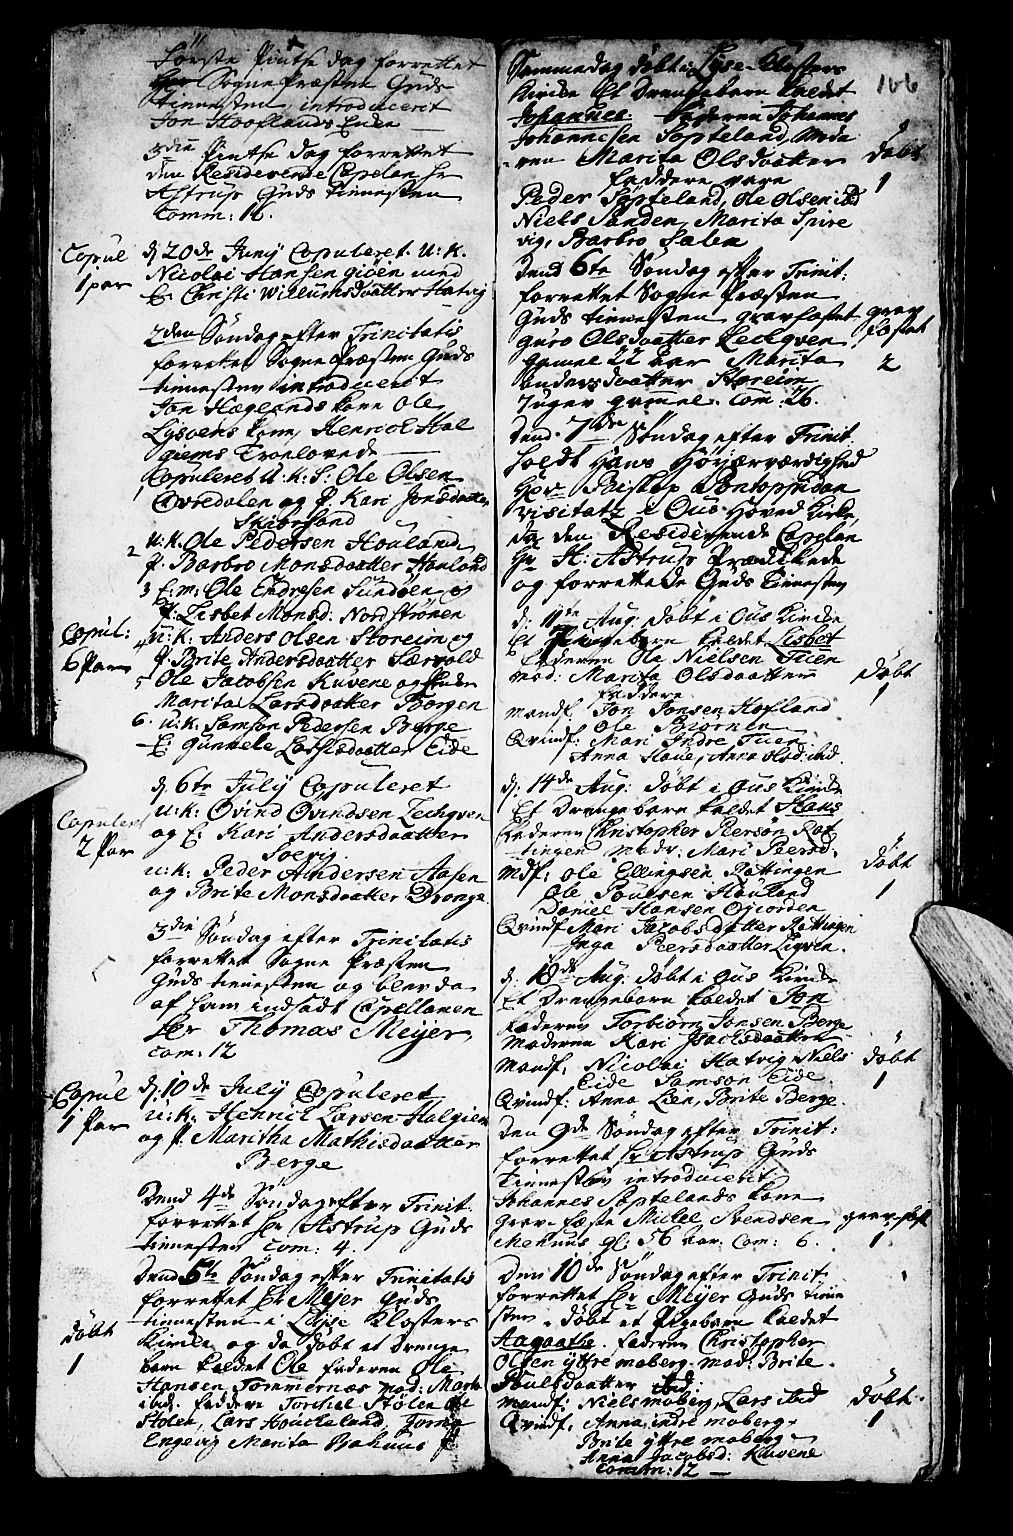 Første Pintse dag forrettet
Sogne Præsten Guds
tienesten, introducerit
Jon Hooflands Enke
3die Pintse dag forrettet
den Residerende Capelan Hr
Astrup Guds tienesten
Comm: 12.
Copul
1 par
d. 20de Junij Copuleret U: K.
Nicolai Hansen gioen med
E: Christi Willumsdaatter Hatvig
2den Søndag efter Trinitatis
forrettet Sogne Præsten Guds
tienesten introduceret
Jon Hæglands kone Ole
Lysøens kone, Henrich Hal
giems Troelovede
Copuleret U: K: S: Ole Olsen
1 Øvredalen og P. Kari Jonsdaatter
Skiørsand
2 U: K. Ole Pedersen Houland
P. Barbro Monsdaatter Houland
3 E: m: Ole Endresen Sundøen og
P: Lisbet Monsd: Nordstrønen
Copul:
6 Par
4 U: K: Anders Olsen Storeim og
P. Brite Andersdaatter Særvold
5 Ole Jacobsen Kuvene og
Marita Larsdaatter Borgen
6. U: K: Samson Pedersen Berge
E: Gunhele Larsdaatter Eide
d. 6te July Copuleret
Copuleret
2 Par
U: K: Ovind Ovindsen Lechven
og E: Kari Andersdaatter
Soevig.
U: K: Peder Andersen Aasen
og Brite Monsdaatter Drange
3die Søndag efter Trinitatis
forrettet Sogne Præsten
Guds tienesten og blev da
af ham indsadt Capellanen
Hr Thomas Meijer
com: 12
Copul
1 Par
d. 10de July Copuleret
U: K: Henric Larsen Halgiem
og P. Maritha Mathisdaatter
Berge
Dend 4de Søndag efter Trinit.
forrettet Hr Astrup Guds
tienesten com: 4.
Dend 5te Søndag efter Trinitatis
forrettet Hr Meijer Guds
tienesten i Lyse Closters
Kirke, og da døbt et Drenge
døbt
1
barn kaldet Ole Faderen Ole
Hansen Tømmernæs mod: Marte
ibid: Faddere Torchel Stolen Ole
Stolen, Lars Houckeland, Torno
Engevig Marita Bahuus
106
Sammedag døbt i Lyse-Closters
Kirke Et Drengebarn kaldet
Johannes. Faderen Johannes
Johannesen Søpteland, Mode
ren Marita Olsdaatter
døbt
1
Faddere vare
Peder Søpteland, Ole Olsen ibd
Niels Sanden, Marita Spire
vig, Barbro Salen
Dend 6te Søndag efter Trinit:
forrettet Sogne Præsten
Guds tienesten gravfæstet
grav
fæstet
2
Guro Olsdaatter Lechven
gamel 22 aar Marita
Andersdaatter Storeim
7 uger gamel. Com: 26.
Dend 7de Søndag efter Trinit.
holdt Hans Høyærværdighed
Herr Biskop Pontoppidan
visitatz i Ous Hoved Kirke
da den Residerende Capelan
Hr H: Astrup Prædikede
og forrettede Guds tienesten
d: 11te Aug: døbt i Ous Kirke
Et Pigebarn kaldet Lisbet
Faderen Ole Nielsen Tuen
mod: Marita Olsdaatter
døbt
1
Faddere
mandf. Jon Jonsen Hofland
Ole Biørnen
Qvindf: Mari Indre Tuen
Anna Hove, Anna Olsd: ibid.
d. 14de Aug: døbt i Ous Kirke
Et Drengebarn kaldet Hans
Faderen Christopher Peersøn Røt
tingen Modr: Mari Peersd:
døbt
1
Mdf: Ole Ellingsen Røttingen
Ole Poulsen Houland
Daniel Hansen Giorden
Qvindf: Mari Jacobsdaatter Røttingen
Inga Peersdaatter Liqven.
d. 18de Aug: døbt i Ous Kirke
Et Drengebarn kaldet Jon
Faderen Torbiørn Jonsen Berge
Moderen Kari Isachsdaatter
døbt
1
Mandf. Nicolai Hatvig Niels
Eide Samson Eide.
Qvindf: Anna Lien, Brite Berge.
Den 9de Søndag efter Trinit:
forrettet Hr Astrup Guds
tienesten introducerit
Johannes Søptelands kone
grav-fæste Michel Svendsen
grav fæst
1
Mehuus gl: 56 aar. Com: 6.
Den 10de Søndag efter Trinit.
forrettet Hr Meijer Guds tiene
sten. døbt et Pigebarn kaldet
Aagaathe. Faderen Christopher
Olsen yttre moberg. mod: Brite
Poulsdaatter ibid:
døbt
1
mandf: Niels moberg, Lars ibid
Qvindf: Anna indre moberg.
Brite yttre moberg
Anna Jacobsd: Kuvene
Comm: 12